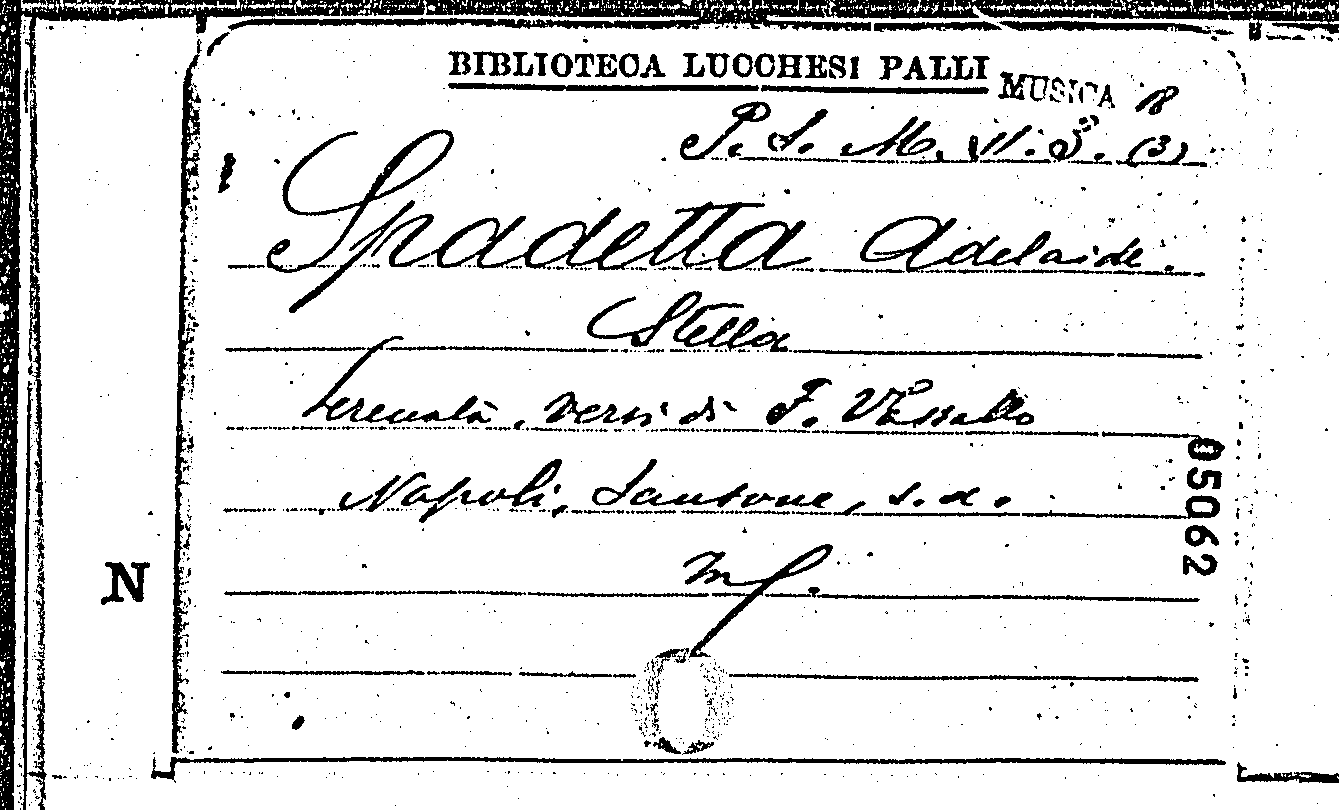 BIBLIOTECA LUCCHESI PALLI
MUSICA 18
P. S. M. 11. 3. (3)
Spadetta Adelaide.
Stella
Serenata, versi di F. Vassallo
Napoli, Santone, s. a.
mf.
N
05062